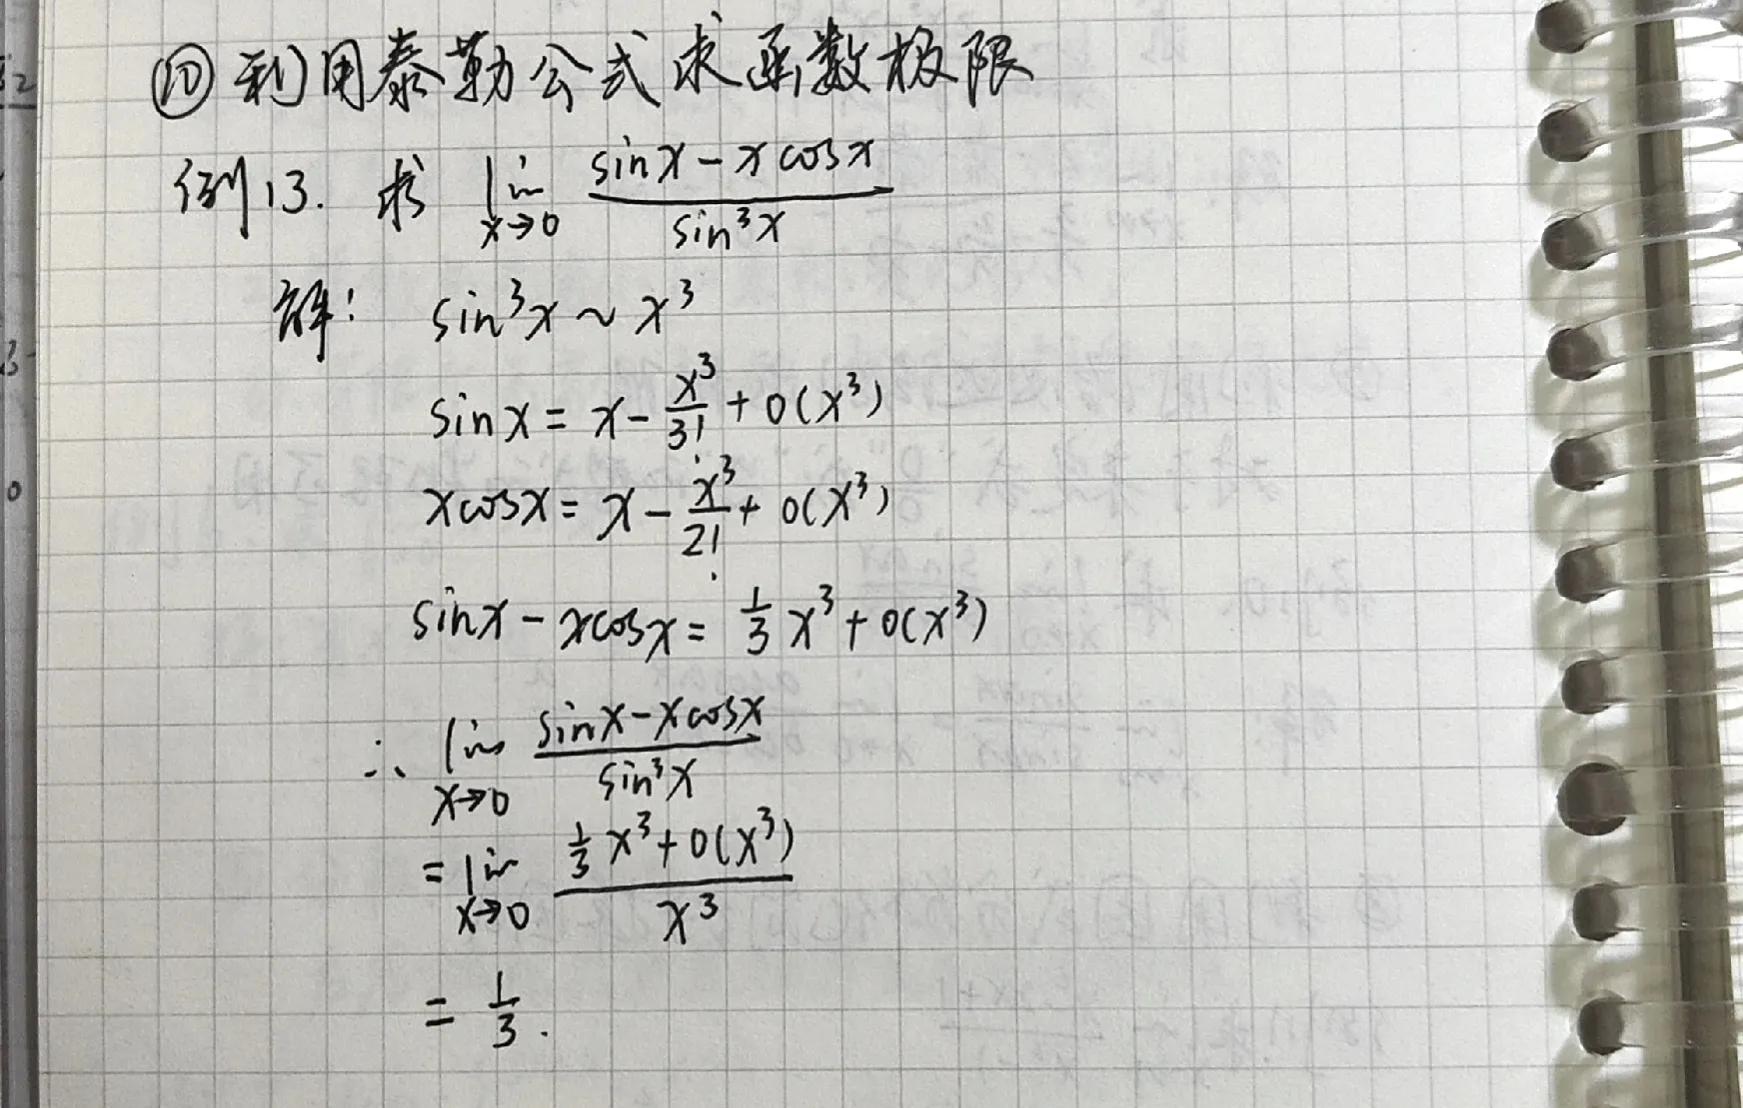 ⑩ 利用泰勒公式求函数极限
例13. 求 lim x→0 (sinx - xcosx)/(sin³x)
解: sin³x ~ x³
sinx = x - x³/3! + o(x³)
xcosx = x - x³/2! + o(x³)
sinx - xcosx = 1/3 x³ + o(x³)
∴ lim x→0 (sinx - xcosx)/(sin³x)
= lim x→0 (1/3 x³ + o(x³))/(x³)
= 1/3.